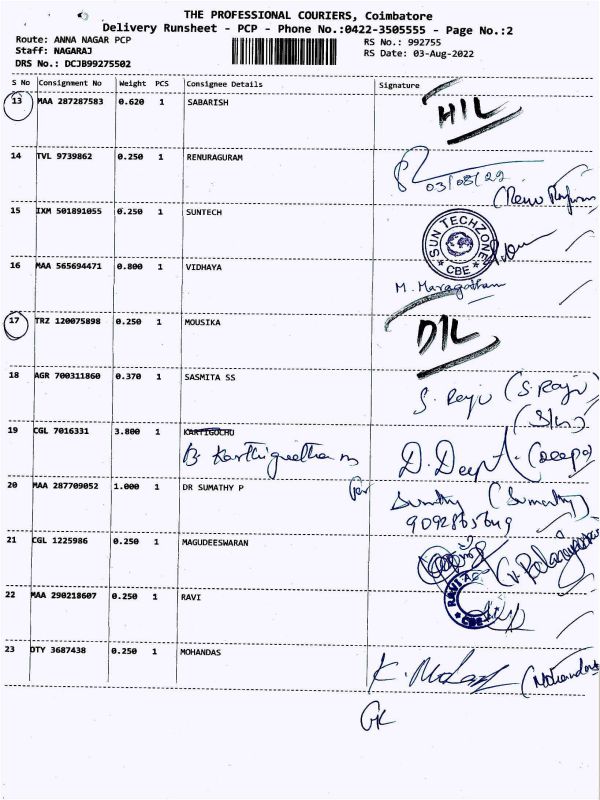 THE PROFESSIONAL COURIERS, Coimbatore
Delivery Runsheet - PCP - Phone No.:0422-3505555 - Page No.:2
Route: ANNA NAGAR PCP
RS No.: 992755
Staff: NAGARAJ
RS Date: 03-Aug-2022
DRS No.: DCJB99275502
S No Consignment No Weight PCS Consignee Details Signature
13 MAA 287287583 0.620 1 SABARISH
14 TVL 9739862 0.250 1 RENURAGURAM
03/08/22
15 IXM 501891055 0.250 1 SUNTECH
SUN TECHZONE
CBE
16 MAA 565694471 0.800 1 VIDHAYA
M. Maragatham
17 TRZ 120075898 0.250 1 MOUSIKA
D/L
18 AGR 700311860 0.370 1 SASMITA SS
S. Raju (S. Raju)
19 CGL 7016331 3.800 1 KARTIGOCHU
D. Deepa
20 MAA 287709052 1.000 1 DR SUMATHY P
Sumathy (Sumathy)
9092865649
21 CGL 1225986 0.250 1 MAGUDEESWARAN
22 MAA 290218607 0.250 1 RAVI
23 DTY 3687438 0.250 1 MOHANDAS
(Mohandas)